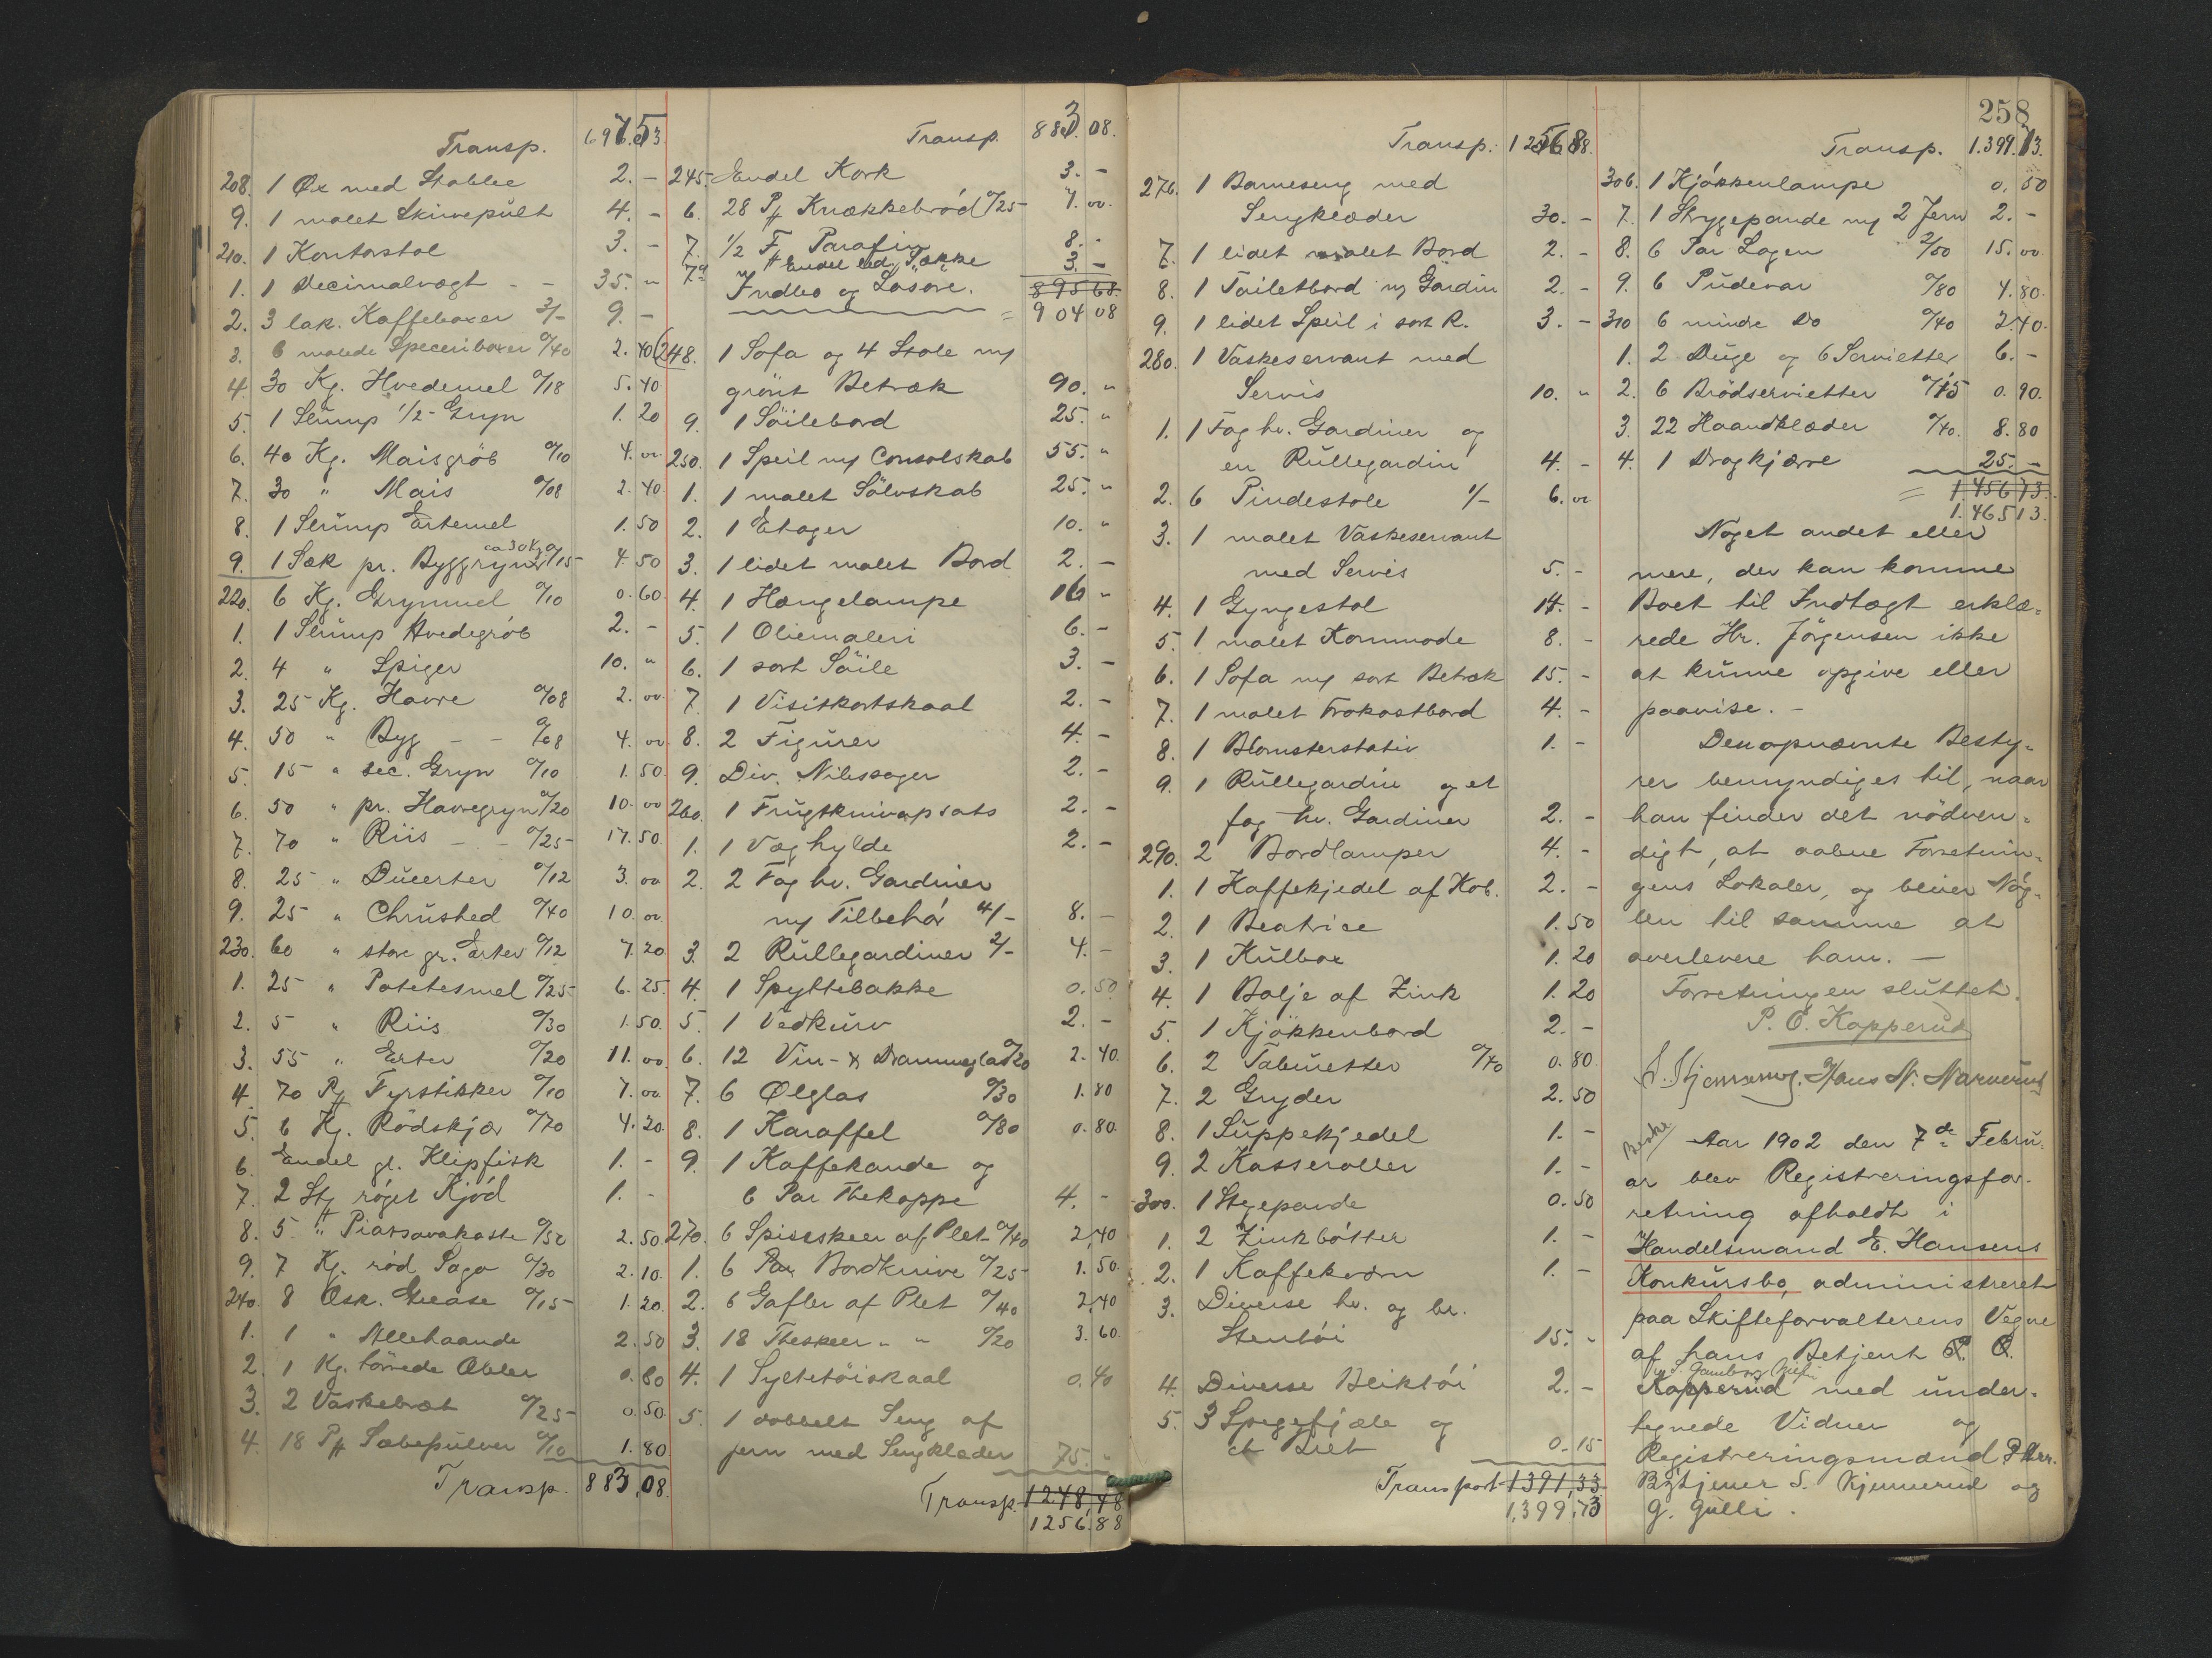 Transp.
208. 1 Øx med Stabbe 2. -
9. 1 malet Skrivepült 4. -
210. 1 Kontorstol 3. -
1. 1 Decimalvægt - - 35. "
2. 3 lak. Kaffeboxer 3/- 9. -
3. 6 malede Speceriboxer 0/40 2.40
4. 30 Kg. Hvedemel 0/18 5.40
5. 1 Slump 1/2 - Gryn 1.20
6. 40 Kg. Maisgrøb 0/10 4.00
7. 30 " Mais 0/08 2.40
8. 1 Slump Ertemel 1.50
9. 1 Sæk pr. Byggryn ca 30 Kg 0/15 4.50
220. 6 Kg. Grynmel 0/10 0.60
1. 1 Slump Hvedegrøb 2. -
2. 4 " Spiger 10. "
3. 25 Kg. Havre 0/08 2.00
4. 50 " Byg - - 0/08 4.00
5. 15 " sec. Gryn 0/10 1.50
6. 50 " pr. Havregryn 0/20 10.00
7. 70 " Riis - - 0/25 17.50
8. 25 " Duerter 0/12 3.00
9. 25 " Chrushed 0/40 10.00
230. 60 " store gr. Erter 0/12 7.20
1. 25 " Potetesmel 0/25 6.25
2. 5 " Riis 0/30 1.50
3. 55 " Erter 0/20 11.00
4. 70 Pk Fyrstikker 0/10 7.00
5. 6 Kg. Rödskjær 0/70 4.20
6. Endel gl. Klipfisk 1. -
7. 2 Stk röget Kjød 1. -
8. 5 " Piassavakoste 0/50 2.50
9. 7 Kg. rød Sago 0/30 2.10
240. 8 Æsk. Grease 0/15 1.20
1. 1 " Allehaande 2.50
2. 1 Kg. törrede Æbler 0.80
3. 2 Vaskebræt 0/25 0.50
4. 18 Pk Sæbepulver 0/10 1.80
Transp. 883,08
Transp. 883.08.
245. Endel Kork 3. -
6. 28 Pk Knækkebrød 0/25 7.00
7. 1/2 F Parafin 8. -
7a Endel led. Sække 3. -
Indbo og Løsøre. 895 68
= 904 08
248. 1 Sofa og 4 Stole m/
grönt Betræk 90. "
9. 1 Söilebord 25. "
250. 1 Speil m/ Consolskab 55. "
1. 1 malet Sölvskab 25. "
2. 1 Etager 10. "
3. 1 lidet malet Bord 2. -
4. 1 Hængelampe 16 "
5. 1 Oliemaleri 6. -
6. 1 sort Söile 3. -
7. 1 Visitkortskaal 2. -
8. 2 Figürer 4. -
9. Div. Nipssager 2. -
260. 1 Frugtknivopsats 2. -
1. 1 Væghylde 2. -
2. 2 Fag hv. Gardiner
m/ Tilbehør 4/- 8. -
3. 2 Rüllegardiner 2/- 4. -
4. 1 Spyttebakke 0.50
5. 1 Vedkürv 2. -
6. 12 Vin- & Drammeglas 0/20 2.40
7. 6 Ølglas 0/30 1.80
8. 1 Karaffel 0/80 0.80
9. 1 Kaffekande og
6 Par Thekoppe 4. -
270. 6 Spiseskeer af Plet 0/40 2,40
1. 6 Par Bordknive 0/25 1.50
2. 6 Gafler af Plet 0/40 2,40
3. 18 Theskeer " " 0/20 3.60
4. 1 Syltetöiskaal 0.40
5. 1 dobbelt Seng af
jern med Sengklæder 75. "
Transp. 1248,48
1256.88
Transp.
276. 1 Barneseng med
Sengklæder 30. -
7. 1 lidet malet Bord 2. -
8. 1 Toiletbord m/ Gardin 2. -
9. 1 lidet Speil i sort R. 3. -
280. 1 Vaskeservant med
Servis 10. "
1. 1 Fag hv. Gardiner og
en Rüllegardin 4. -
2. 6 Pindestole 1/- 6.00
3. 1 malet Vaskeservant
med Servis 5. -
4. 1 Gyngestol 14. -
5. 1 malet Kommode 8. -
6. 1 Sofa m/ sort Betræk 15. -
7. 1 malet Frokostbord 4. -
8. 1 Blomsterstativ 1. -
9. 1 Rüllegardin og et
fag hv. Gardiner 2. -
290. 2 Bordlamper 4. -
1. 1 Kaffekjedel af Kob. 2. -
2. 1 Beatrice 1.50
3. 1 Külbox 1.20
4. 1 Balje af Zink 1.20
5. 1 Kjøkkenbord 2. -
6. 2 Tabüretter 0/40 0.80
7. 2 Gryder 2.50
8. 1 Süppekjedel 1. -
9. 2 Kasseroller 1. -
300. 1 Stegepande 0.50
1. 2 Zinkbøtter 1. -
2. 1 Kaffekværn 1. -
3. Diverse hv. og br.
Stentöi 15. -
4. Diverse Bliktöi 2. -
5. 3 Spegefjæle og
et 0.15
Transport 1391,33
1,399,73
258
Transp. 1.399.73.
306. 1 Kjøkkenlampe 0.50
7. 1 Strygepande m/ 2 Jern 2. -
8. 6 Par Lagen 2/50 15.00
9. 6 Püdevar 0/80 4.80
310 6 mindre Do 0/40 2.40
1. 2 Düge og 6 Servietter 6. -
2. 6 Brödservietter 0/15 0.90
3. 22 Haandklæder 0/40. 8.80
4. 1 Dragkjærre 25. -
= 1.456 73.
1.465 13.
Noget andet eller
mere, der kan komme
Boet til Indtægt erklæ-
rede Hr. Jörgensen ikke
at künne opgive eller
paavise. -
Den opnævnte Besty-
rer bemyndiges til, naar
han finder det nødven-
digt, at aabne Forretnin-
gens Lokaler, og bliver Nøg-
len til samme at
overlevere ham. -
Forretningen slüttet.
P. O. Kopperüd
Hans N. Narverud
Beske/ Aar 1902 den 7de Febrü-
ar blev Registreringsfor-
retning afholdt i
Handelsmand E. Hansens
Konkürsbo, administreret
paa Skifteforvalterens Vegne
af hans Betjent P. O.
Kopperüd med ünder-
tegnede Vidner og
Registreringsmænd
S. Kjemmerud og
G. Gülli.